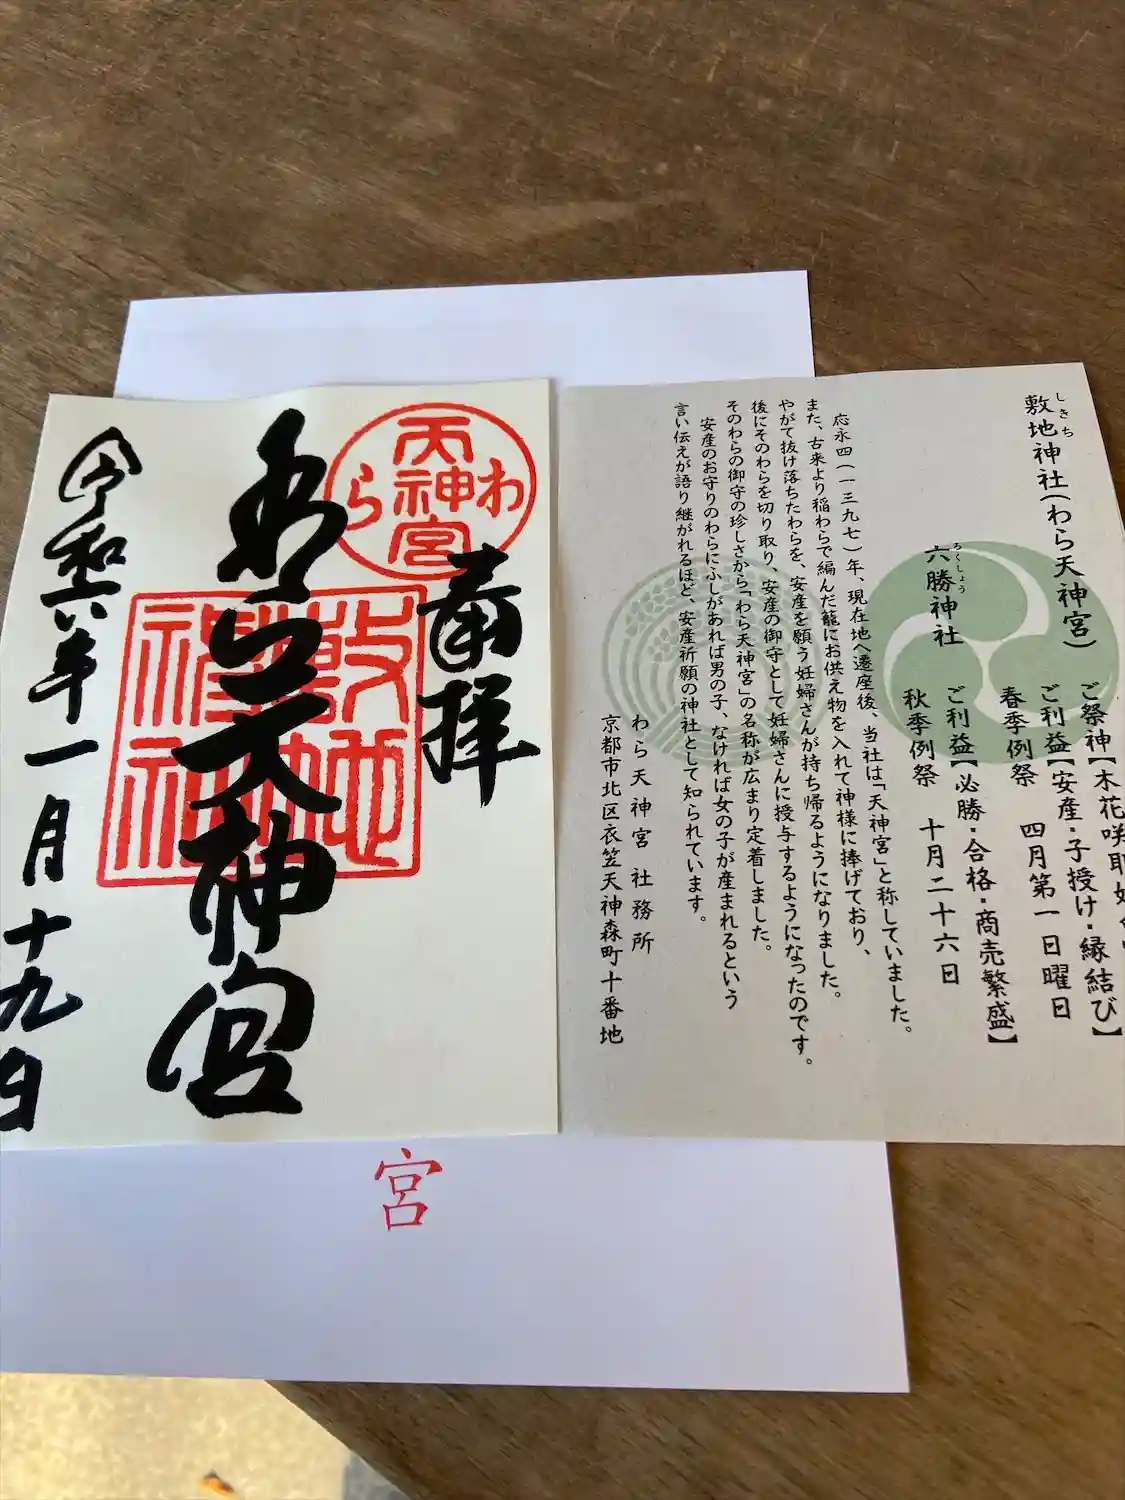 奉拝
わら天神宮
令和六年一月十九日
天神宮
わら
敷地神社
しきち
敷地神社(わら天神宮)
ご祭神【木花咲耶
ご利益【安産・子授け・縁結び】
春季例祭 四月第一日曜日
ろくしょう
六勝神社
ご利益【必勝・合格・商売繁盛】
秋季例祭 十月二十六日
応永四(一三九七)年、現在地へ遷座後、当社は「天神宮」と称していました。
また、古来より稲わらで編んだ籠にお供え物を入れて神様に捧げており、
やがて抜け落ちたわらを、安産を願う妊婦さんが持ち帰るようになりました。
後にそのわらを切り取り、安産の御守として妊婦さんに授与するようになったのです。
そのわらの御守の珍しさから「わら天神宮」の名称が広まり定着しました。
安産のお守りのわらにふしがあれば男の子、なければ女の子が産まれるという
言い伝えが語り継がれるほど、安産祈願の神社として知られています。
わら天神宮 社務所
京都市北区衣笠天神森町十番地
宮